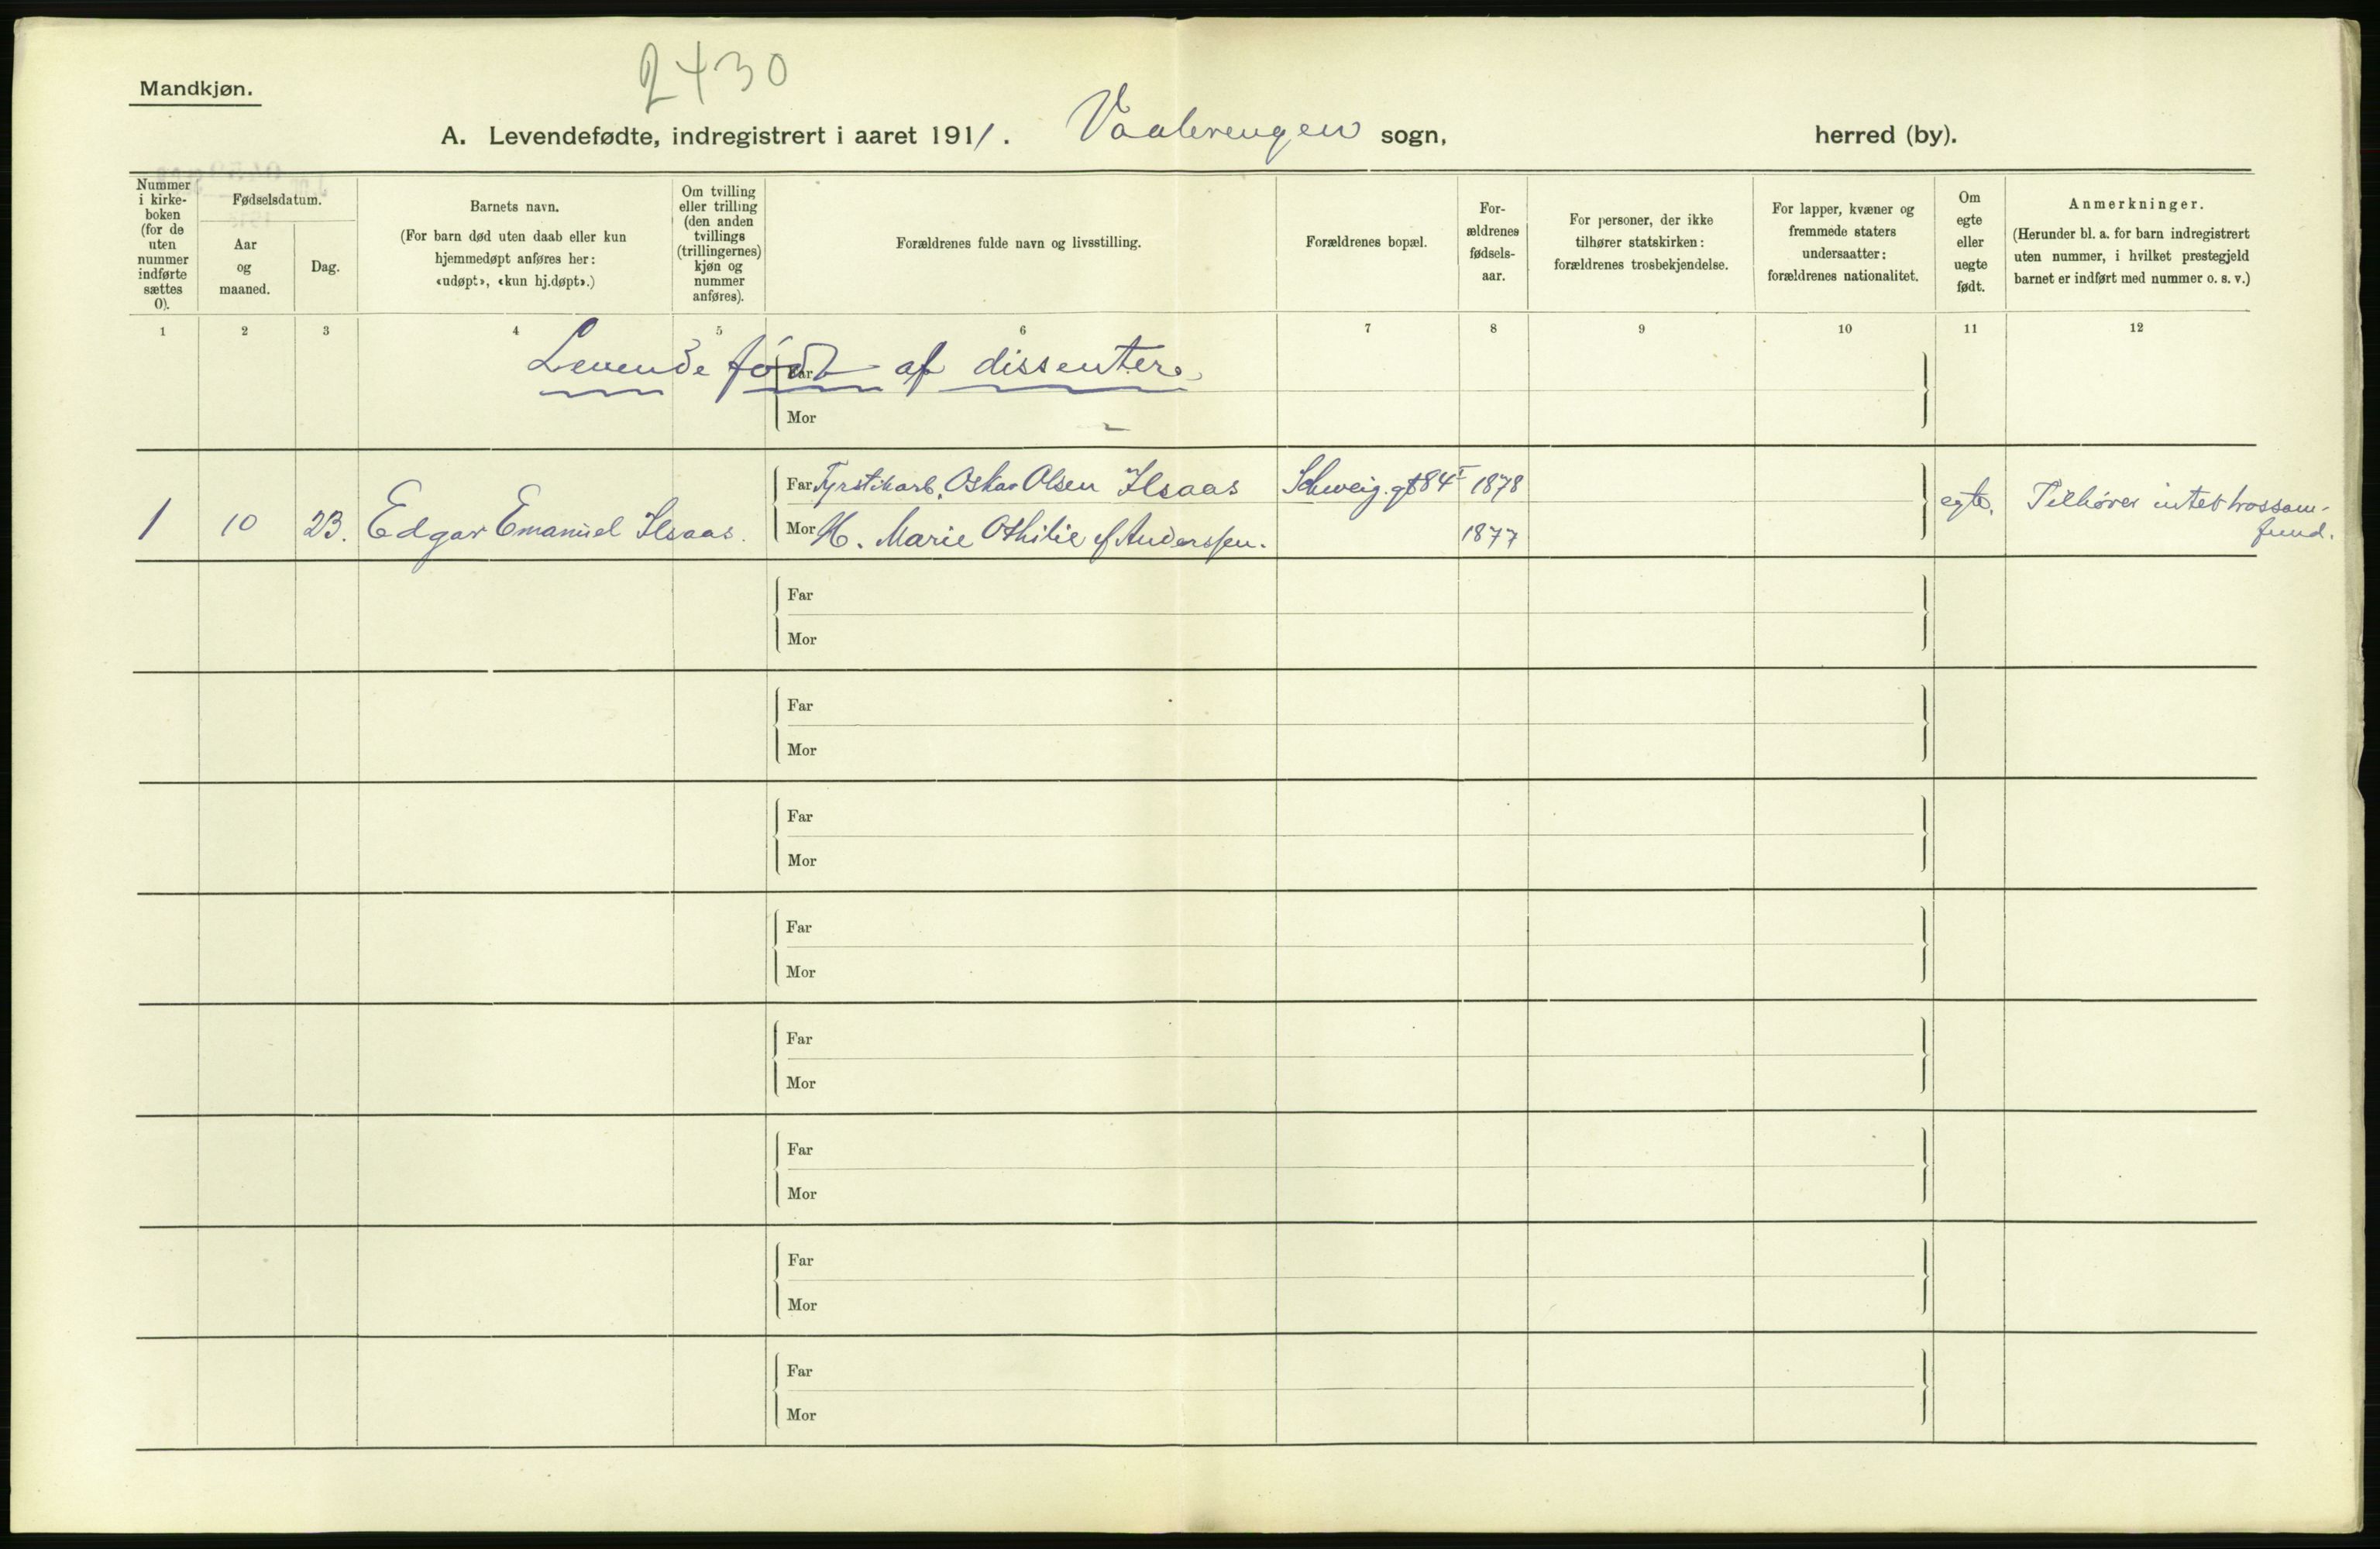 2430
Mandkjøn.
A. Levendefødte, indregistrert i aaret 1911. Vaalerengen sogn, herred (by).
Nummer i kirke- boken (for de uten nummer indførte sættes 0).
Fødselsdatum.
Aar og maaned.
Dag.
Barnets navn.
(For barn død uten daab eller kun hjemmedøpt anføres her: «udøpt», «kun hj.døpt».)
Om tvilling eller trilling (den anden tvillings (trillingernes) kjøn og nummer anføres).
Forældrenes fulde navn og livsstilling.
Forældrenes bopæl.
For- ældrenes fødsels- aar.
For personer, der ikke tilhører statskirken: forældrenes trosbekjendelse.
For lapper, kvæner og fremmede staters undersaatter: forældrenes nationalitet.
Om egte eller uegte født.
Anmerkninger.
(Herunder bl. a. for barn indregistrert uten nummer, i hvilket prestegjeld barnet er indført med nummer o. s. v.)
1 2 3 4 5 6 7 8 9 10 11 12
Levende født af dissentere
Far
Mor
Far Fyrstikarb. Oskar Olsen Ilsaas Schweig. gt 84 I 1878
1 10 23. Edgar Emanuel Ilsaas. egte. Tilhører intet trossam-
Mor H. Marie Othilie f Anderssen. 1877 fund.
Far
Mor
Far
Mor
Far
Mor
Far
Mor
Far
Mor
Far
Mor
Far
Mor
Far
Mor